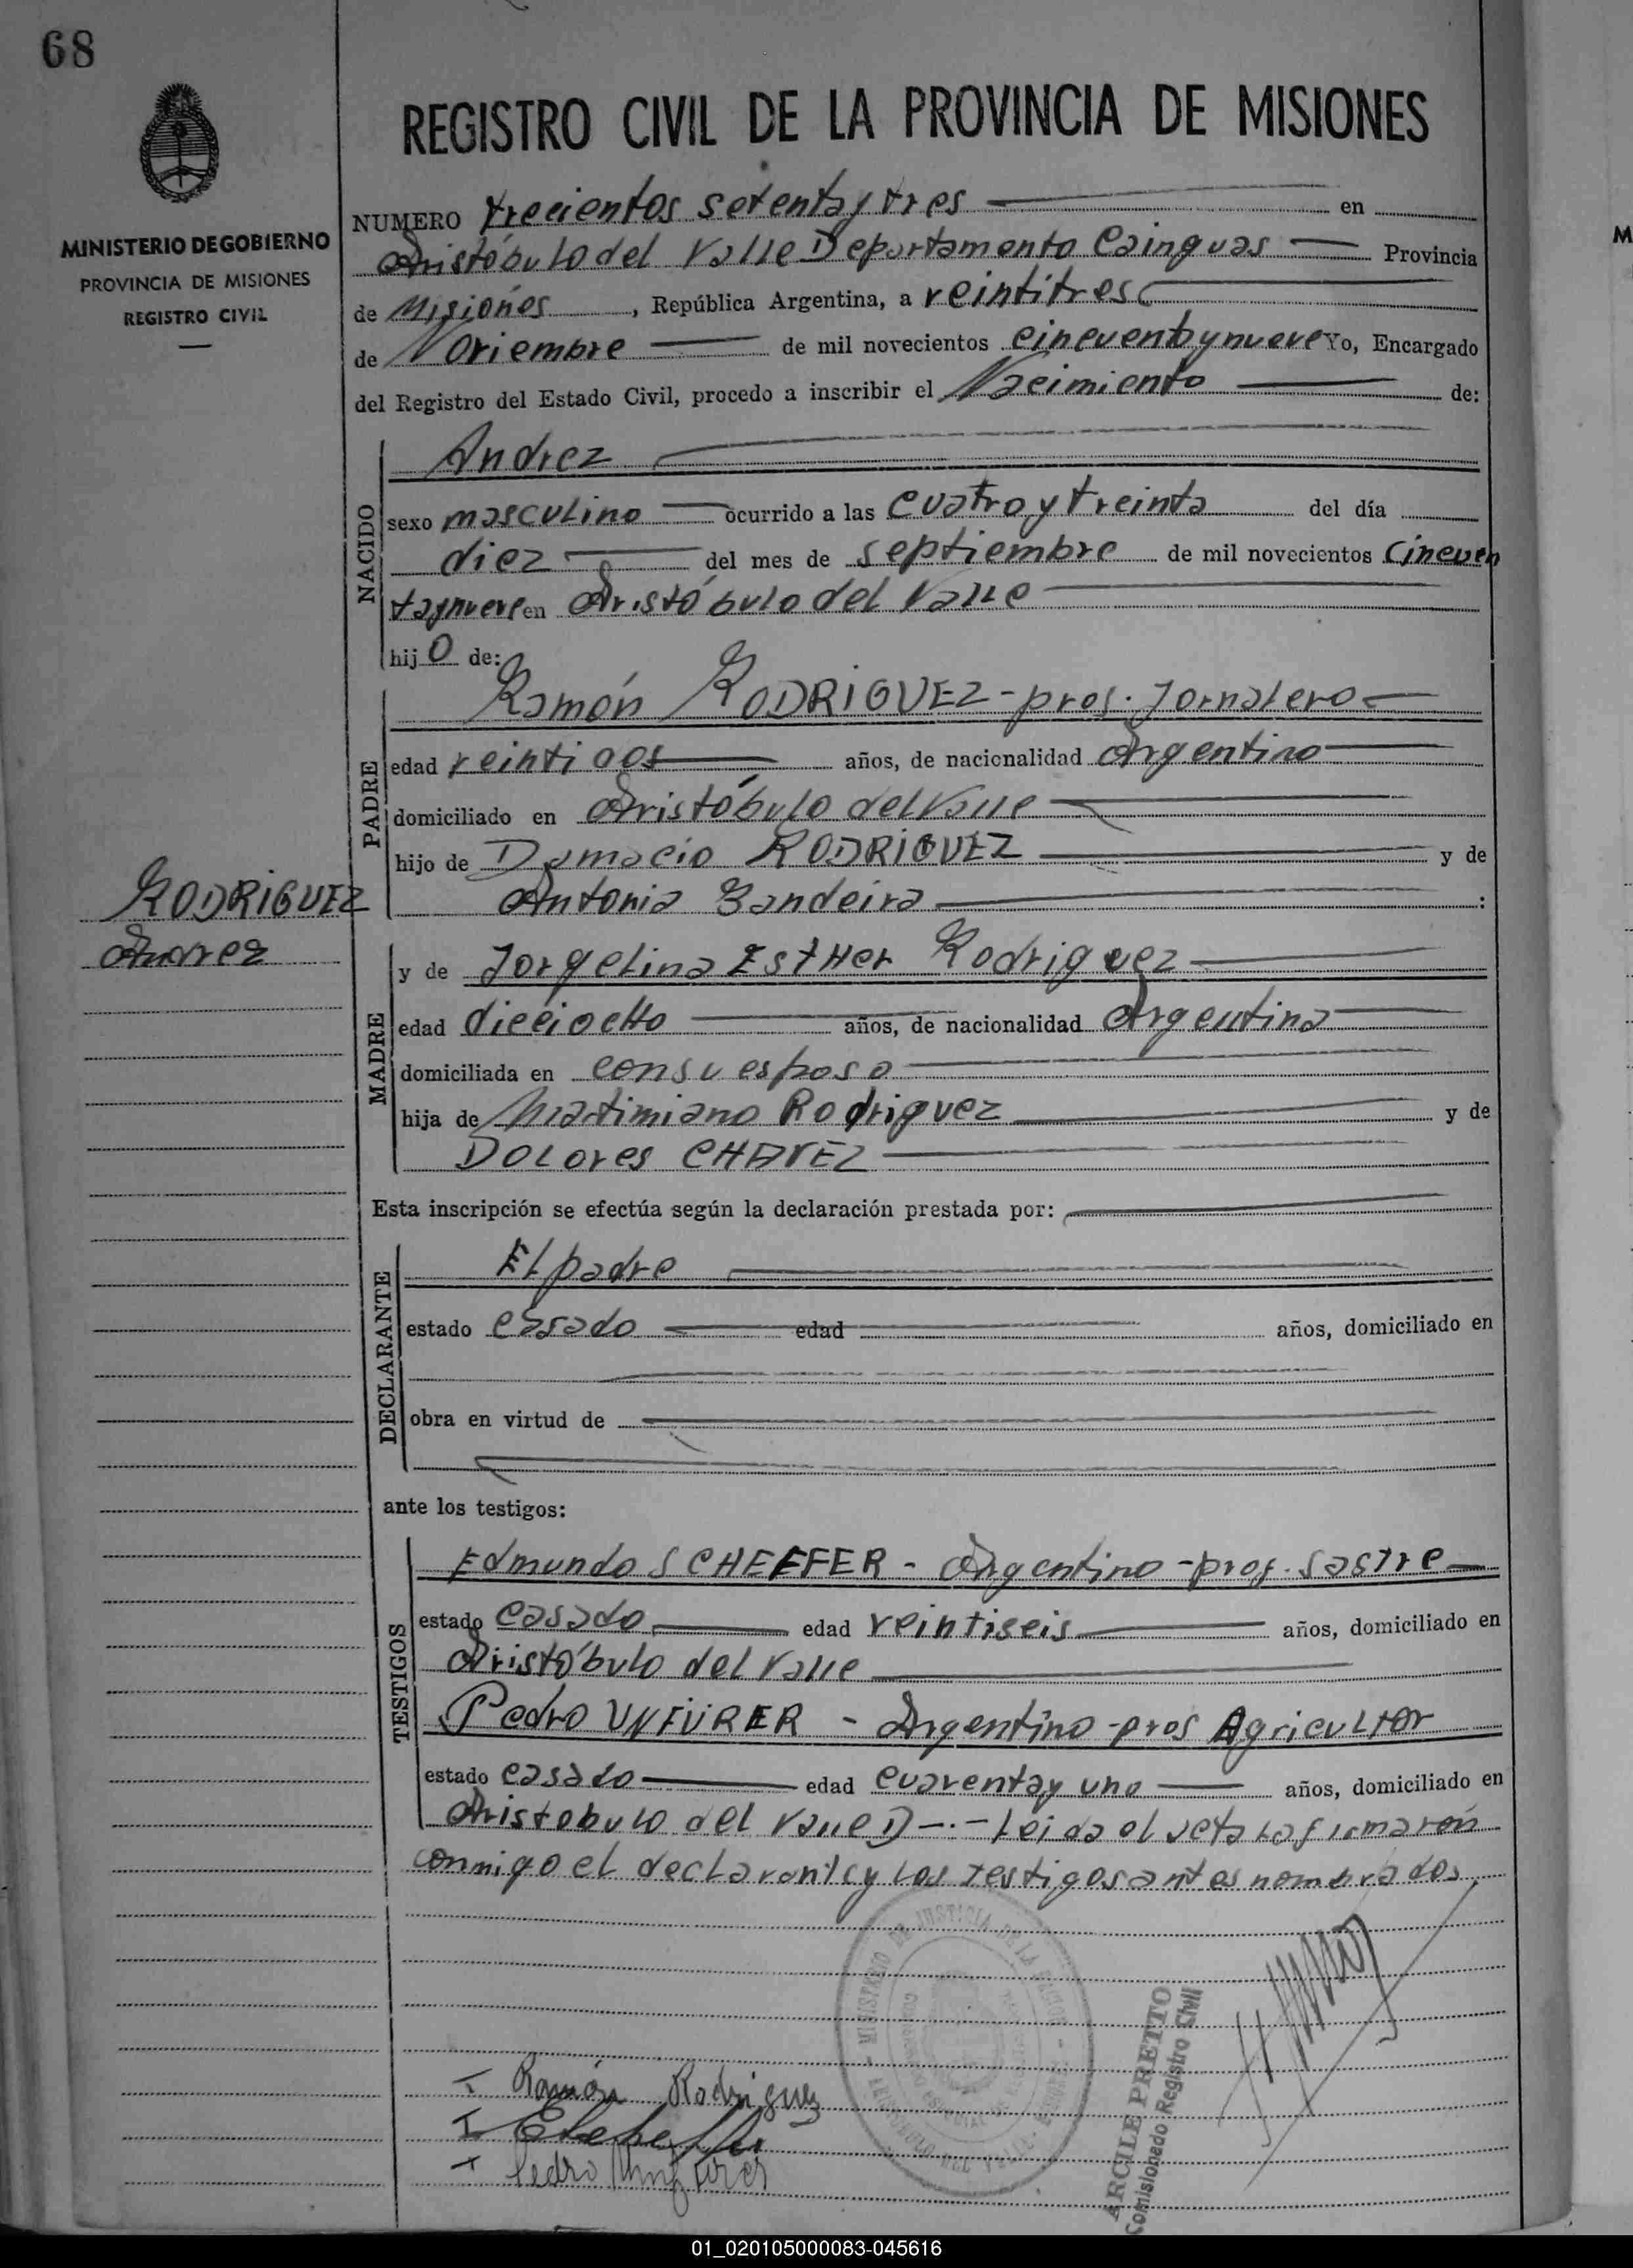 68
MINISTERIO DE GOBIERNO
PROVINCIA DE MISIONES
REGISTRO CIVIL
REGISTRO CIVIL DE LA PROVINCIA DE MISIONES
NUMERO trecientos setenta y tres en
Aristóbulo del Valle Departamento Cainguas Provincia
de Misiones, República Argentina, a veintitres
de Noviembre de mil novecientos cincuenta y nueve Yo, Encargado
del Registro del Estado Civil, procedo a inscribir el Nacimiento de:
NACIDO
Andrez
sexo masculino ocurrido a las cuatro y treinta del día
diez del mes de septiembre de mil novecientos cincuen
ta y nueve en Aristóbulo del Valle
hijo de:
PADRE
Ramón RODRIGUEZ - prof. Jornalero
edad veinti dos años, de nacionalidad Argentino
domiciliado en Aristóbulo del Valle
hijo de Damacio RODRIGUEZ y de
Antonia Bandeira :
RODRIGUEZ
Andrez
MADRE
y de Jorgelina EstHer Rodriguez
edad dieciocHo años, de nacionalidad Argentina
domiciliada en con su esposo
hija de Martimiano Rodriguez y de
DOLores CHAVEZ
Esta inscripción se efectúa según la declaración prestada por:
DECLARANTE
El padre
estado casado edad años, domiciliado en
obra en virtud de
ante los testigos:
TESTIGOS
Edmundo SCHEFFER - Argentino - prof. Sastre
estado casado edad veintiseis años, domiciliado en
Aristóbulo del Valle
Pedro UNFÜRER - Argentino - prof Agricultor
estado casado edad cuarenta y uno años, domiciliado en
Aristobulo del Valle D -.- Leida el acta la firmaron
conmigo el declarante y los testigos antes nombrados
MINISTERIO DE JUSTICIA DE LA
ARISTOBULO DEL VALLE
ARCILE PRETTO
Comisionado Registro Civil
Ramón Rodriguez
Pedro
01_020105000083-045616